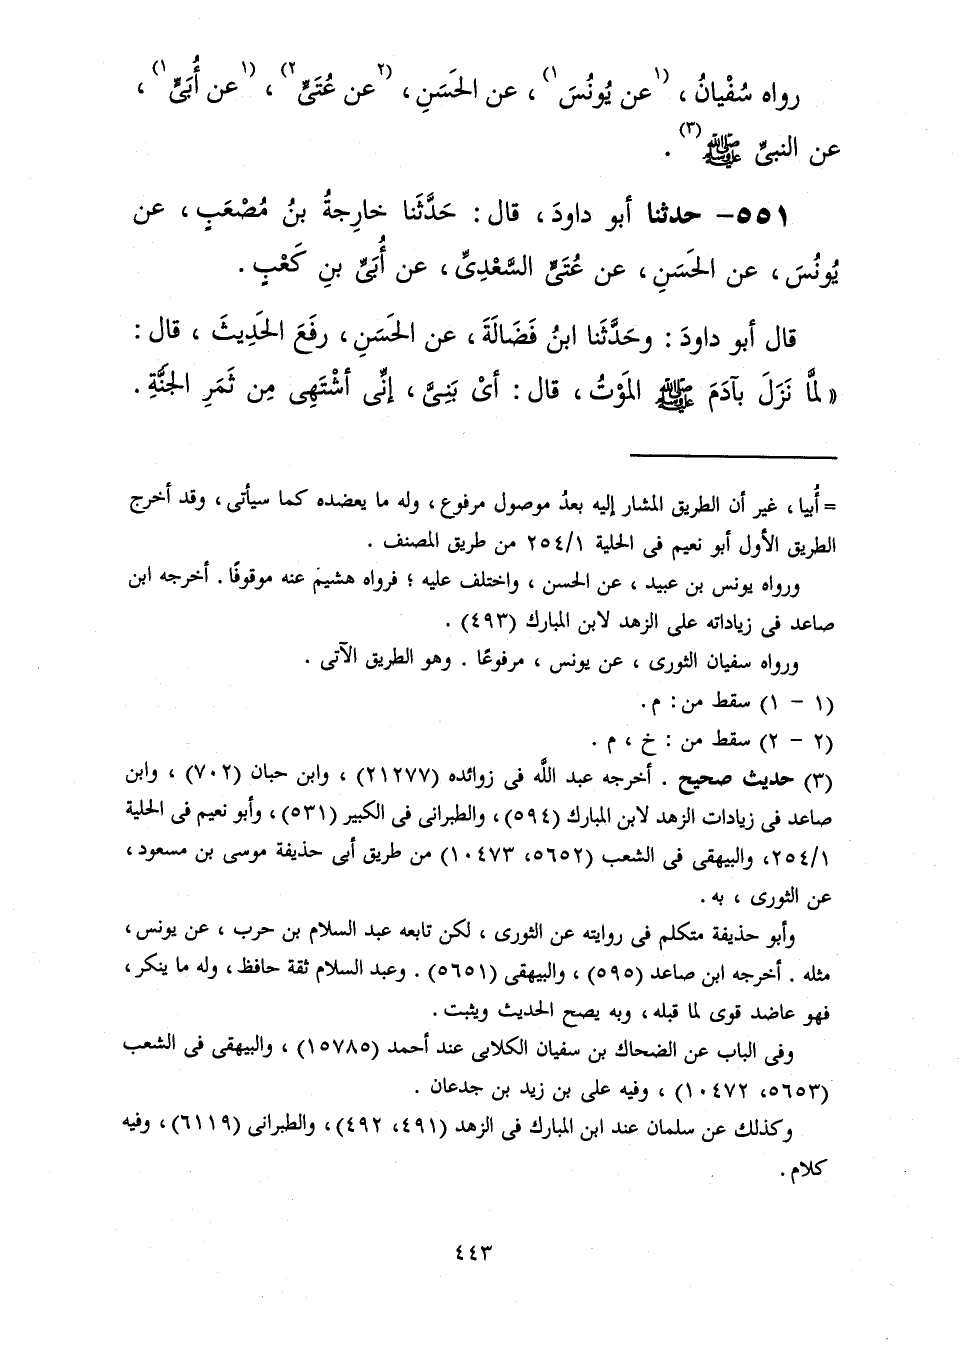 رواه سُفْيانُ ، (١عن يُونُسَ١) ، عن الحَسَنِ ، (٢عن عُتَىٍّ٢) ، (١عن أُبَىٍّ١) ،
عن النبىِّ ﷺ(٣) .
٥٥١- حدثنا أبو داودَ ، قال : حَدَّثَنا خارِجةُ بنُ مُصْعَبٍ ، عن
يُونُسَ ، عن الحَسَنِ ، عن عُتَىٍّ السَّعْدِىِّ ، عن أُبَىِّ بنِ كَعْبٍ .
قال أبو داودَ : وحَدَّثَنا ابنُ فَضَالَةَ ، عن الحَسَنِ ، رفَعَ الحَدِيثَ ، قال :
« لمَّا نَزَلَ بآدَمَ ﷺ المَوْتُ ، قال : أىْ بَنِىَّ ، إنِّى أشْتَهِى مِن ثَمَرِ الجَنَّةِ .
= أُبيا ، غير أن الطريق المشار إليه بعدُ موصول مرفوع ، وله ما يعضده كما سيأتى ، وقد أخرج
الطريق الأول أبو نعيم فى الحلية ٢٥٤/١ من طريق المصنف .
ورواه يونس بن عبيد ، عن الحسن ، واختلف عليه ؛ فرواه هشيم عنه موقوفًا . أخرجه ابن
صاعد فى زياداته على الزهد لابن المبارك (٤٩٣) .
ورواه سفيان الثورى ، عن يونس ، مرفوعًا . وهو الطريق الآتى .
(١ - ١) سقط من : م .
(٢ - ٢) سقط من : خ ، م .
(٣) حديث صحيح . أخرجه عبد اللَّه فى زوائده (٢١٢٧٧) ، وابن حبان (٧٠٢) ، وابن
صاعد فى زيادات الزهد لابن المبارك (٥٩٤) ، والطبرانى فى الكبير (٥٣١) ، وأبو نعيم فى الحلية
٢٥٤/١ ، والبيهقى فى الشعب (٥٦٥٢، ١٠٤٧٣) من طريق أبى حذيفة موسى بن مسعود ،
عن الثورى ، به .
وأبو حذيفة متكلم فى روايته عن الثورى ، لكن تابعه عبد السلام بن حرب ، عن يونس ،
مثله . أخرجه ابن صاعد (٥٩٥) ، والبيهقى (٥٦٥١) . وعبد السلام ثقة حافظ ، وله ما ينكر ،
فهو عاضد قوى لما قبله ، وبه يصح الحديث ويثبت .
وفى الباب عن الضحاك بن سفيان الكلابى عند أحمد (١٥٧٨٥) ، والبيهقى فى الشعب
(٥٦٥٣، ١٠٤٧٢) ، وفيه على بن زيد بن جدعان .
وكذلك عن سلمان عند ابن المبارك فى الزهد (٤٩١، ٤٩٢) ، والطبرانى (٦١١٩) ، وفيه
كلام .
٤٤٣